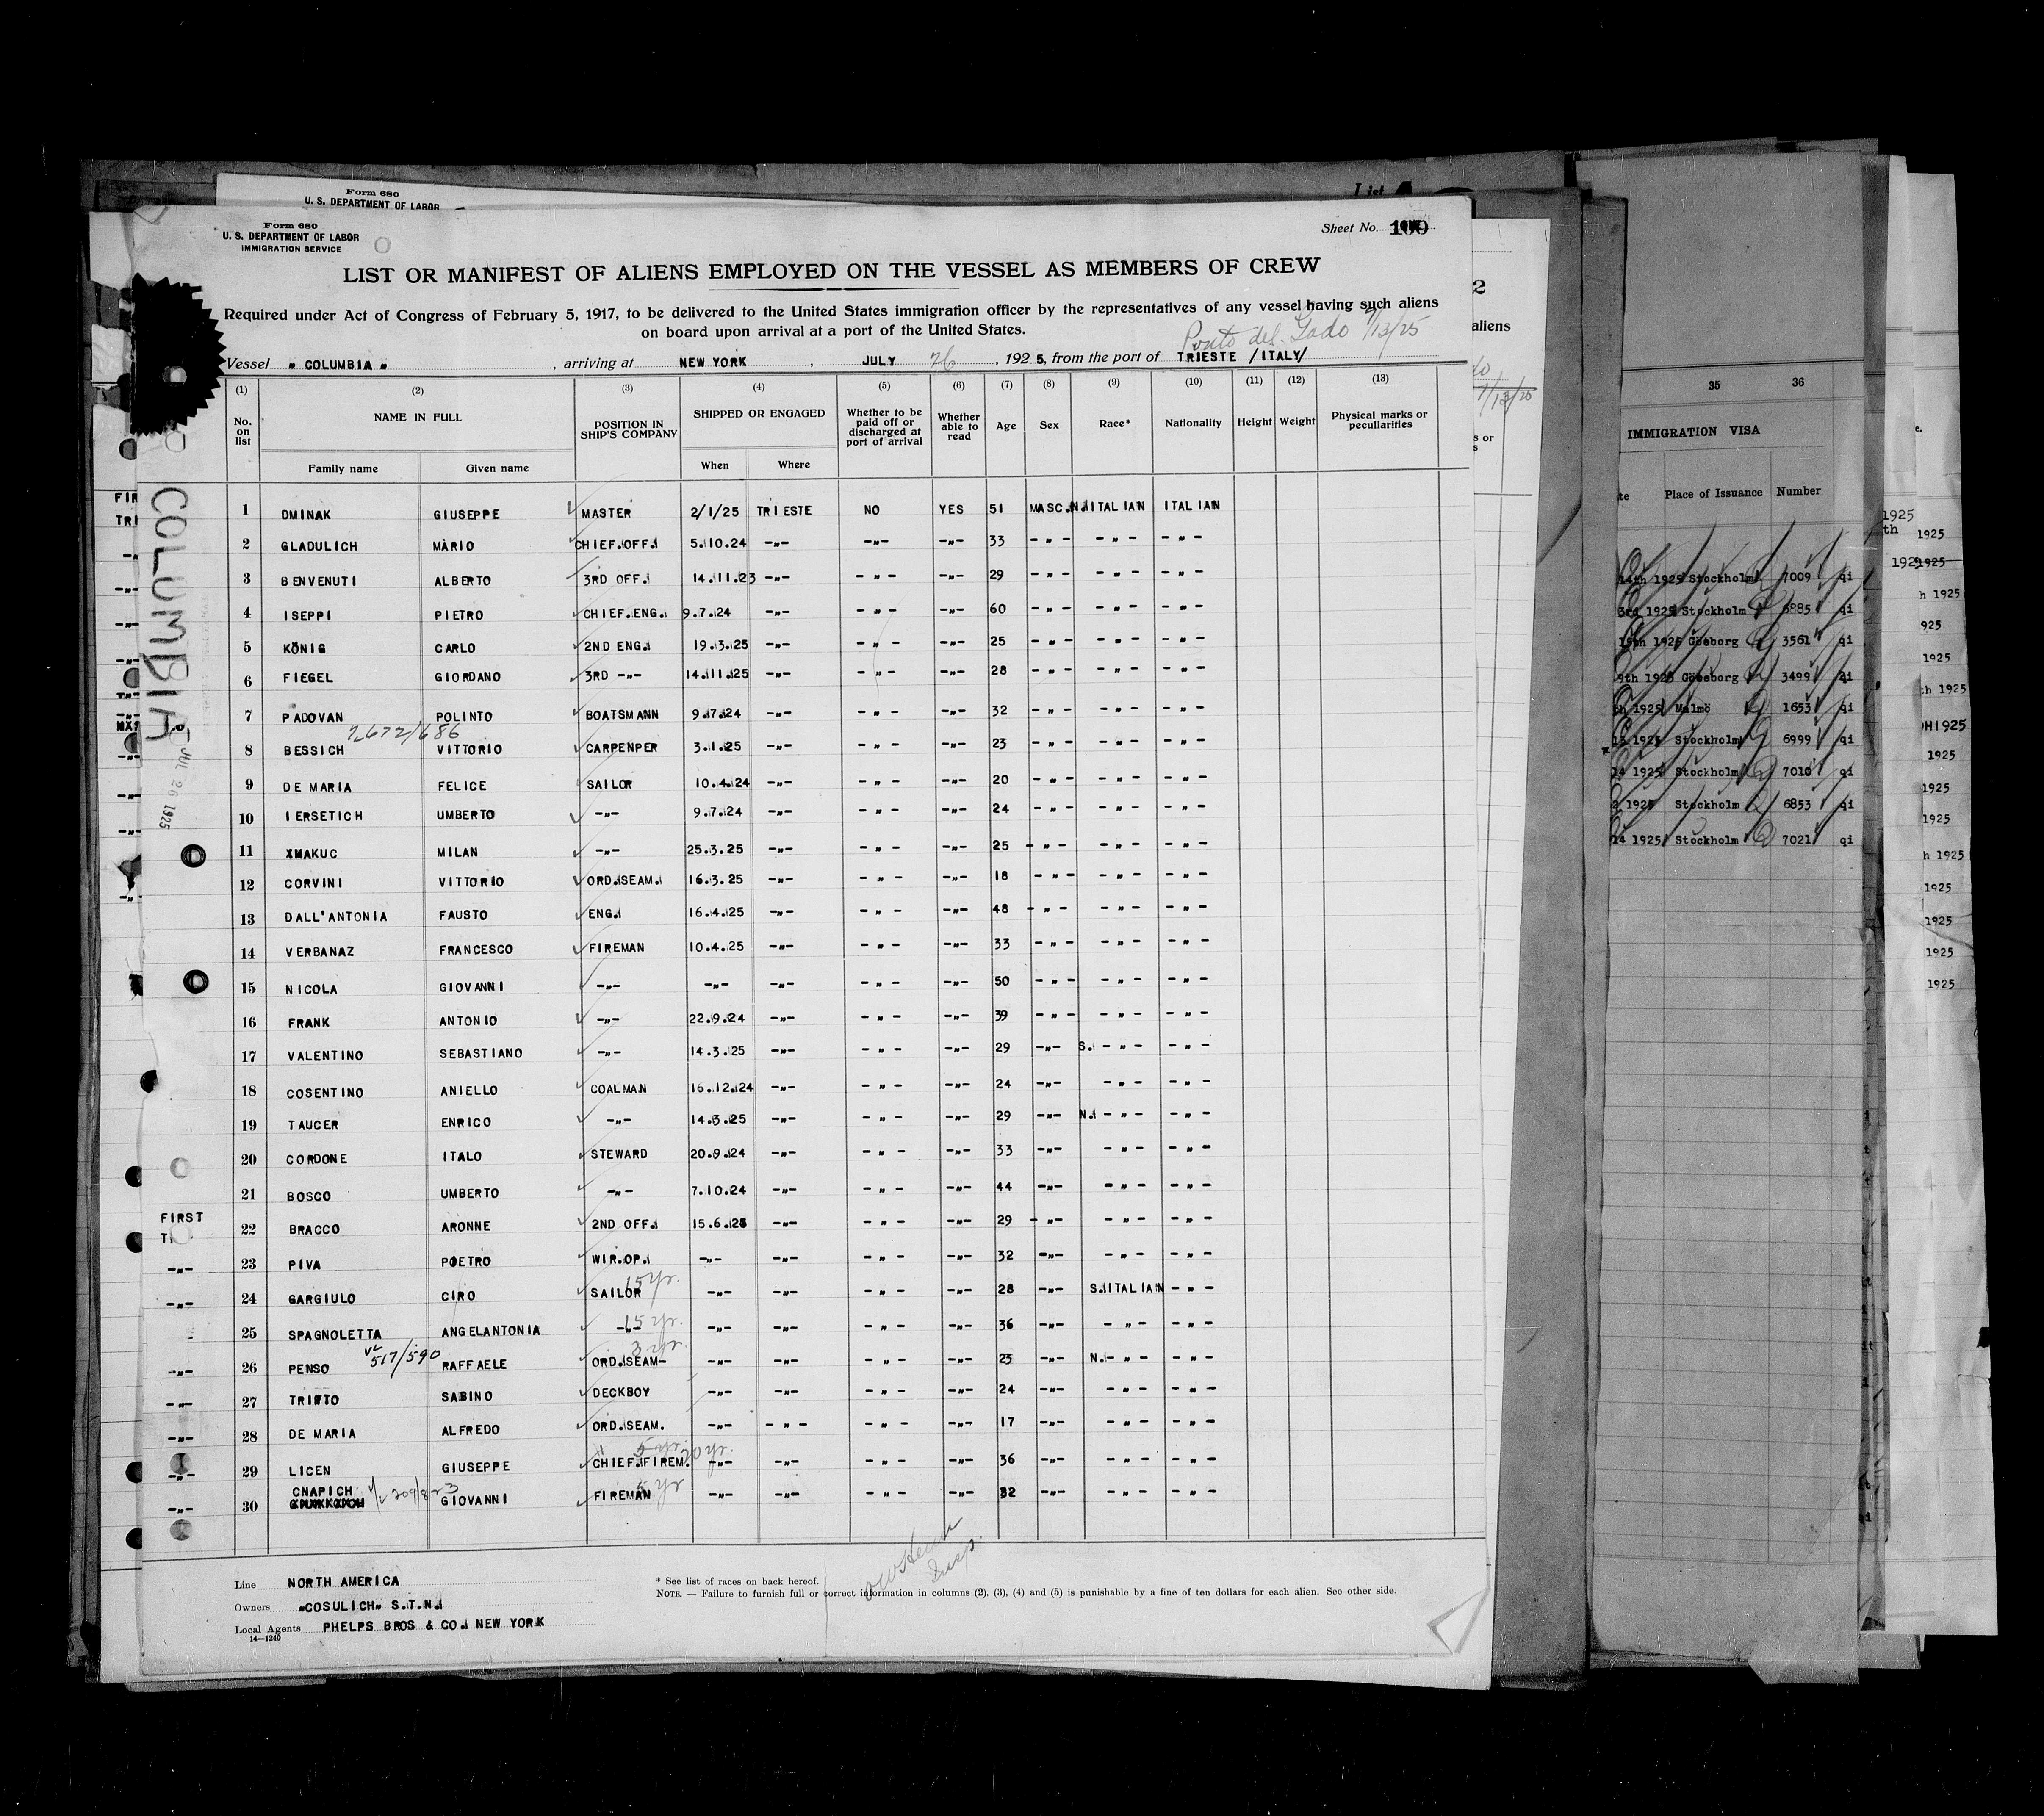 Form 680
U. S. DEPARTMENT OF LABOR
Form 680
U. S. DEPARTMENT OF LABOR
IMMIGRATION SERVICE
Sheet No. 100
LIST OR MANIFEST OF ALIENS EMPLOYED ON THE VESSEL AS MEMBERS OF CREW
Required under Act of Congress of February 5, 1917, to be delivered to the United States immigration officer by the representatives of any vessel having such aliens
on board upon arrival at a port of the United States.
Ponto del. Gado 7/13/25
Vessel „ COLUMBIA „ , arriving at NEW YORK , JULY 26 , 1925, from the port of TRIESTE /ITALY/
(1) (2) (3) (4) (5) (6) (7) (8) (9) (10) (11) (12) (13)
No. on list NAME IN FULL POSITION IN SHIP'S COMPANY SHIPPED OR ENGAGED Whether to be paid off or discharged at port of arrival Whether able to read Age Sex Race* Nationality Height Weight Physical marks or peculiarities
Family name Given name When Where
1 DMINAK GIUSEPPE MASTER 2/1/25 TRIESTE NO YES 51 MASC. N.ITALIAN ITALIAN
2 GLADULICH MARIO CHIEF.OFF. 5.10.24 -„- -„- -„- 33 -„- -„- -„-
3 BENVENUTI ALBERTO 3RD OFF. 14.11.23 -„- -„- -„- 29 -„- -„- -„-
4 ISEPPI PIETRO CHIEF.ENG. 9.7.24 -„- -„- -„- 60 -„- -„- -„-
5 KÖNIG CARLO 2ND ENG. 19.3.25 -„- -„- -„- 25 -„- -„- -„-
6 FIEGEL GIORDANO 3RD -„- 14.11.25 -„- -„- -„- 28 -„- -„- -„-
7 PADOVAN POLINTO BOATSMANN 9.7.24 -„- -„- -„- 32 -„- -„- -„-
2672/686
8 BESSICH VITTORIO CARPENPER 3.1.25 -„- -„- -„- 23 -„- -„- -„-
9 DE MARIA FELICE SAILOR 10.4.24 -„- -„- -„- 20 -„- -„- -„-
10 IERSETICH UMBERTO -„- 9.7.24 -„- -„- -„- 24 -„- -„- -„-
11 XMAKUC MILAN -„- 25.3.25 -„- -„- -„- 25 -„- -„- -„-
12 CORVINI VITTORIO ORD.SEAM. 16.3.25 -„- -„- -„- 18 -„- -„- -„-
13 DALL'ANTONIA FAUSTO ENG. 16.4.25 -„- -„- -„- 48 -„- -„- -„-
14 VERBANAZ FRANCESCO FIREMAN 10.4.25 -„- -„- -„- 33 -„- -„- -„-
15 NICOLA GIOVANNI -„- -„- -„- -„- -„- 50 -„- -„- -„-
16 FRANK ANTONIO -„- 22.9.24 -„- -„- -„- 39 -„- -„- -„-
17 VALENTINO SEBASTIANO -„- 14.3.25 -„- -„- -„- 29 -„- S. -„- -„-
18 COSENTINO ANIELLO COALMAN 16.12.24 -„- -„- -„- 24 -„- -„- -„-
19 TAUCER ENRICO -„- 14.3.25 -„- -„- -„- 29 -„- N. -„- -„-
20 CORDONE ITALO STEWARD 20.9.24 -„- -„- -„- 33 -„- -„- -„-
21 BOSCO UMBERTO -„- 7.10.24 -„- -„- -„- 44 -„- -„- -„-
22 BRACCO ARONNE 2ND OFF. 15.6.25 -„- -„- -„- 29 -„- -„- -„-
23 PIVA POETRO WIR.OP. -„- -„- -„- -„- 32 -„- -„- -„-
15 yr.
24 GARGIULO CIRO SAILOR -„- -„- -„- -„- 28 -„- S.ITALIAN -„-
15 yr.
25 SPAGNOLETTA ANGELANTONIA -„- -„- -„- -„- -„- 36 -„- -„- -„-
517/590 3 yr.
26 PENSO RAFFAELE ORD.SEAM- -„- -„- -„- -„- 23 -„- N. -„- -„-
27 SABINO DECKBOY -„- -„- -„- -„- 24 -„- -„- -„-
28 DE MARIA ALFREDO ORD.SEAM. -„- -„- -„- -„- 17 -„- -„- -„-
5 yr. 20 yr.
29 LICEN GIUSEPPE CHIEF.FIREM. -„- -„- -„- -„- 36 -„- -„- -„-
CNAPICH 209/823 5 yr
30 GIOVANNI FIREMAN -„- -„- -„- -„- 32 -„- -„- -„-
Line NORTH AMERICA
Owners „COSULICH„ S.T.N.
Local Agents PHELPS BROS & CO. NEW YORK
14—1240
* See list of races on back hereof.
NOTE. — Failure to furnish full or correct information in columns (2), (3), (4) and (5) is punishable by a fine of ten dollars for each alien. See other side.
Insp.
COLUMBIA
JUL 26 1925
FIRST
2
aliens
7/13/25
s or
35 36
IMMIGRATION VISA
Place of Issuance Number
14th 1925 Stockholm 7009 qi
3rd 1925 Stockholm 6885 qi
15th 1925 Göeborg 3561 qi
9th 1925 Göeborg 3499 qi
th 1925 Malmö 1653 qi
13 1925 Stockholm 6999 qi
14 1925 Stockholm 7010 qi
2 1925 Stockholm 6853 qi
14 1925 Stockholm 7021 qi
1925
th 1925
1925
h 1925
925
1925
th 1925
1925
1925
1925
1925
h 1925
1925
1925
1925
1925